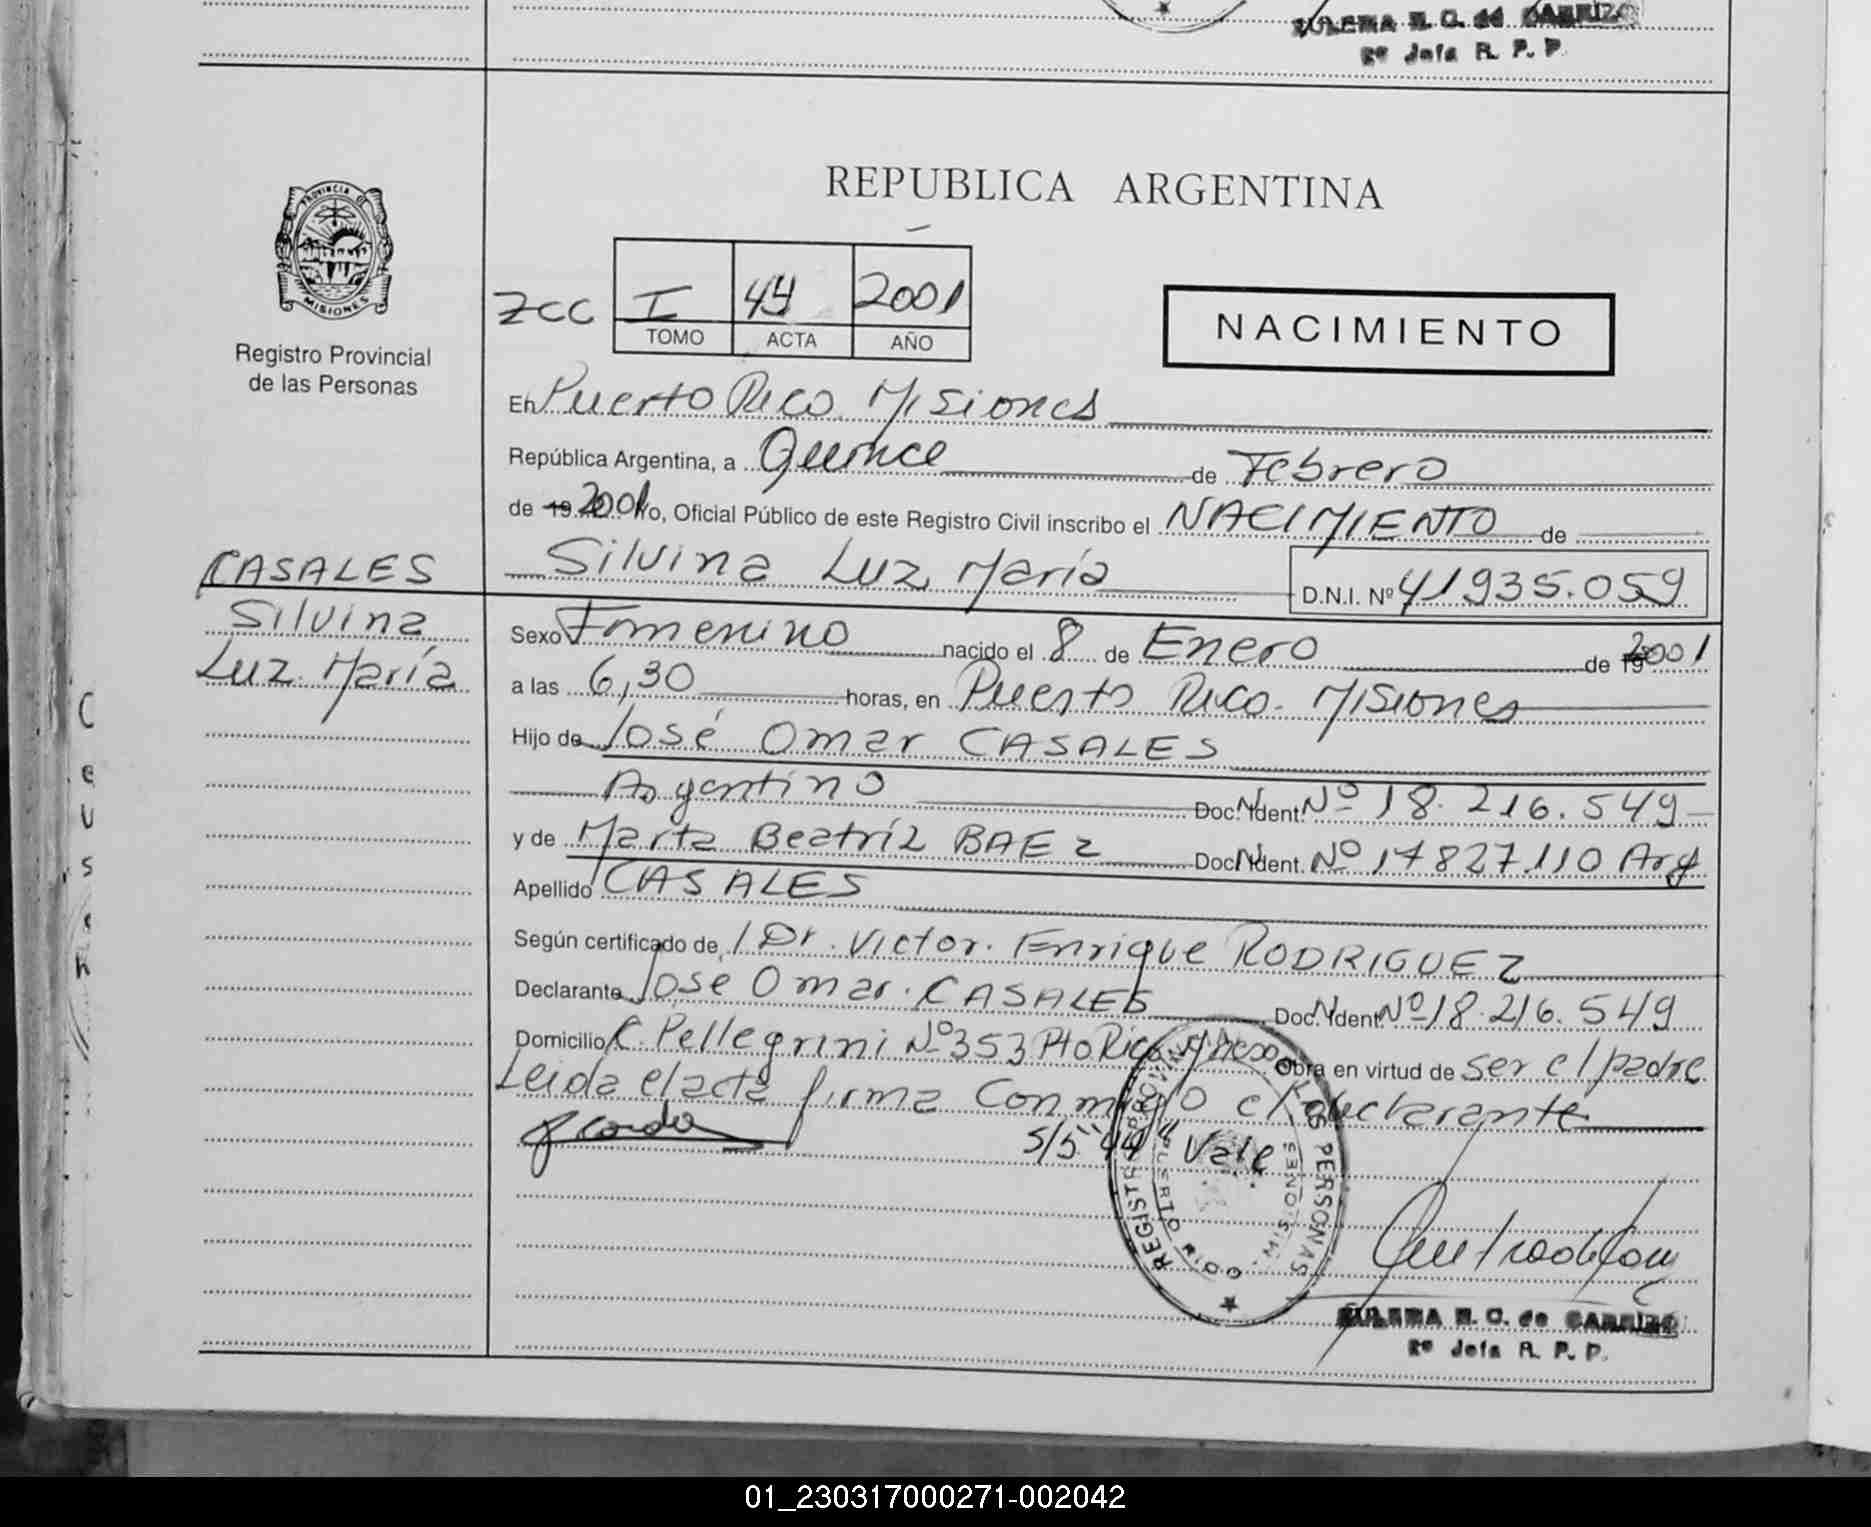 ZULEMA E. C. de CARRIZO
2º Jefa R. P. P.
PROVINCIA DE
MISIONES
Registro Provincial
de las Personas
REPUBLICA ARGENTINA
ZCC I 44 2001
TOMO ACTA AÑO
NACIMIENTO
En Puerto Rico. Misiones
República Argentina, a Quince de Febrero
de 19 2001 Yo, Oficial Público de este Registro Civil inscribo el NACIMIENTO de
CASALES
Silvina
Luz María
Silvina Luz María D.N.I. Nº 41935.059
Sexo Femenino nacido el 8 de Enero de 19 2001
a las 6,30 horas, en Puerto Rico. Misiones
Hijo de José Omar CASALES
Argentino Doc. N. Ident. Nº 18.216.549
y de Marta Beatríz BAEZ Doc. N. Ident. Nº 17827.110 Arg
Apellido CASALES
Según certificado de Dr. Victor. Enrique RODRIGUEZ
Declarante José Omar. CASALES Doc. N. Ident. Nº 18.216.549
Domicilio C. Pellegrini Nº 353 Pto Rico Mnes Obra en virtud de ser el padre
Leida el acta firma Conmigo el declarante
S/S "44" Vale.
REGISTRO PROVINCIAL DE LAS PERSONAS
PUERTO RICO
MISIONES
ZULEMA E. C. de CARRIZO
2º Jefa R. P. P.
01_230317000271-002042